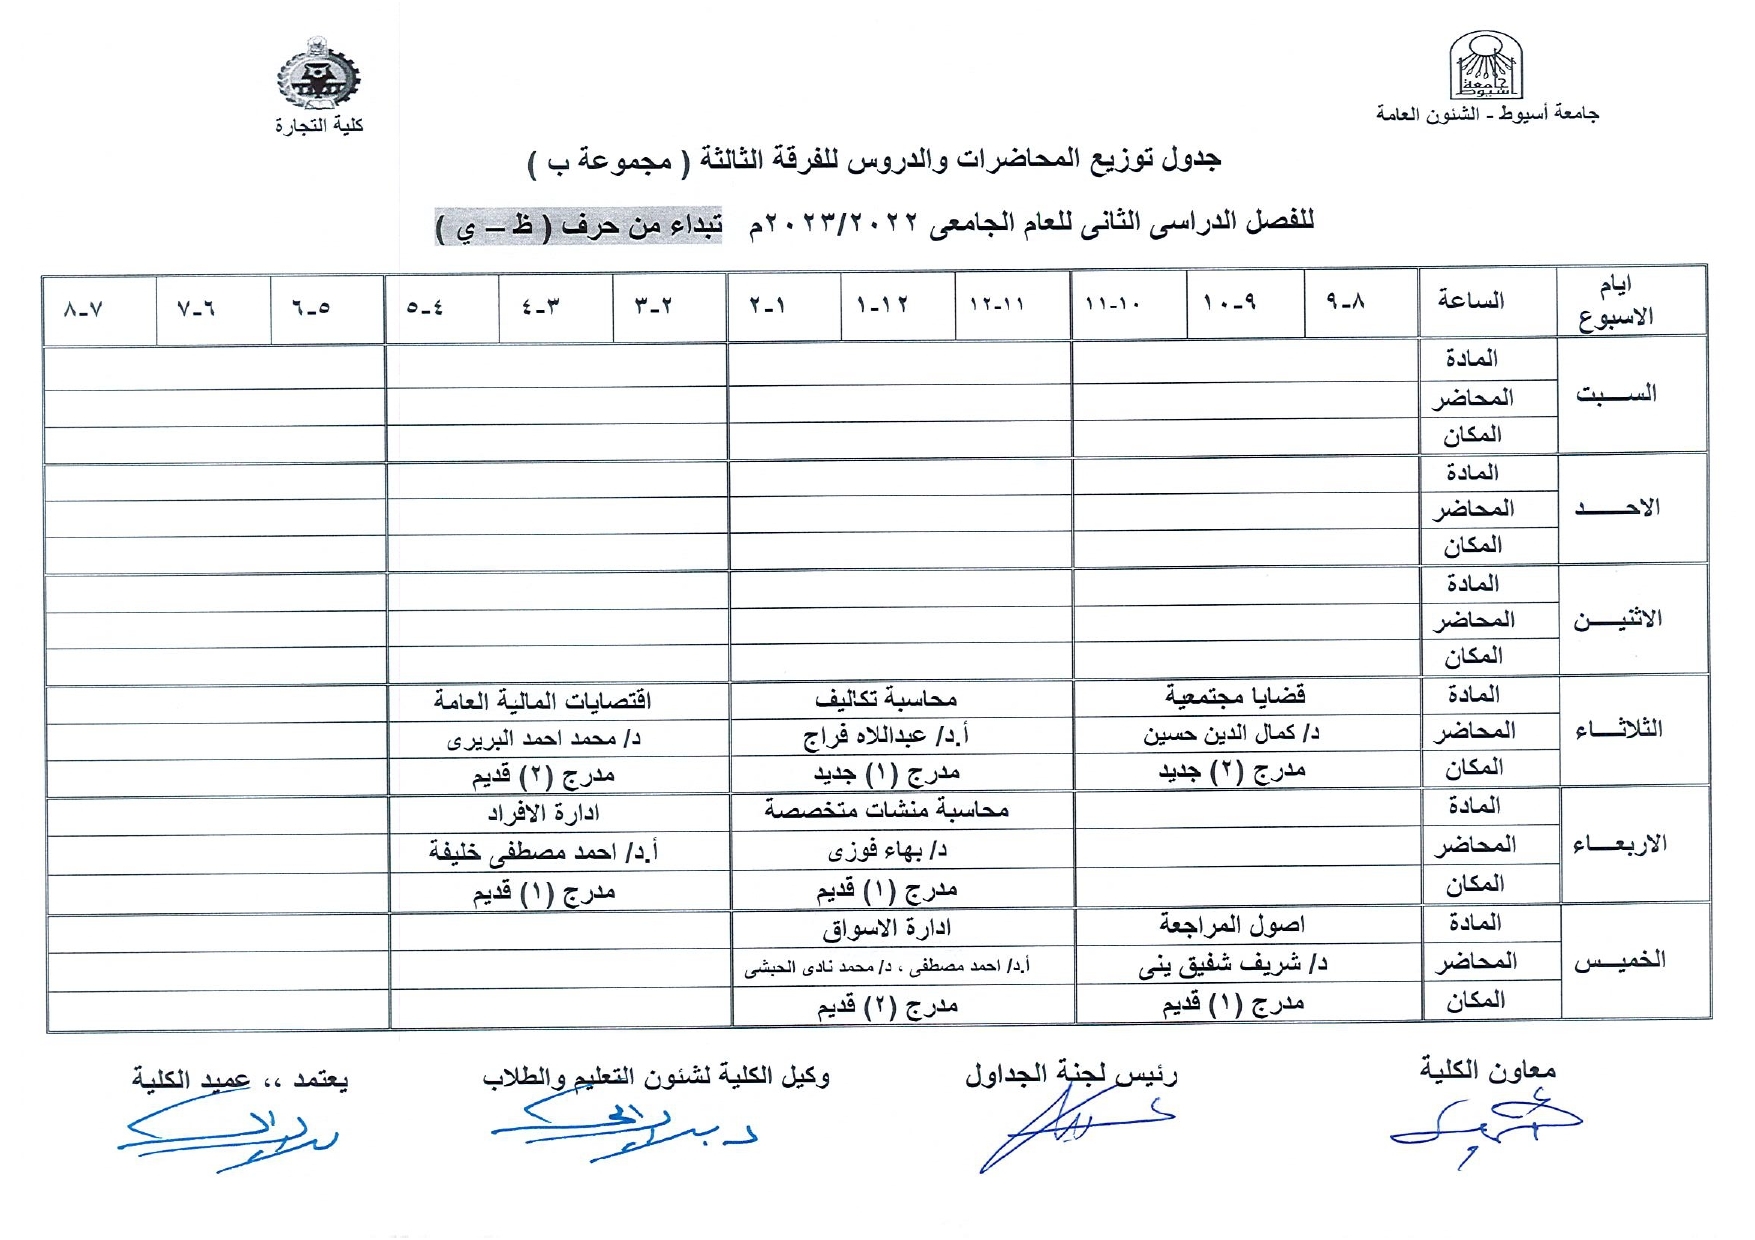 جامعة أسيوط
جامعة أسيوط - الشئون العامة
كلية التجارة
جدول توزيع المحاضرات والدروس للفرقة الثالثة ( مجموعة ب )
للفصل الدراسى الثانى للعام الجامعى ٢٠٢٣/٢٠٢٢م تبداء من حرف ( ظ – ي )
ايام الاسبوع الساعة ٨-٩ ٩-١٠ ١٠-١١ ١١-١٢ ١٢-١ ١-٢ ٢-٣ ٣-٤ ٤-٥ ٥-٦ ٦-٧ ٧-٨
السبت المادة
المحاضر
المكان
الاحد المادة
المحاضر
المكان
الاثنين المادة
المحاضر
المكان
الثلاثاء المادة قضايا مجتمعية محاسبة تكاليف اقتصايات المالية العامة
المحاضر د/ كمال الدين حسين أ.د/ عبداللاه فراج د/ محمد احمد البريرى
المكان مدرج (٢) جديد مدرج (١) جديد مدرج (٢) قديم
الاربعاء المادة محاسبة منشات متخصصة ادارة الافراد
المحاضر د/ بهاء فوزى أ.د/ احمد مصطفى خليفة
المكان مدرج (١) قديم مدرج (١) قديم
الخميس المادة اصول المراجعة ادارة الاسواق
المحاضر د/ شريف شفيق ينى أ.د/ احمد مصطفى ، د/ محمد نادى الحبشى
المكان مدرج (١) قديم مدرج (٢) قديم
معاون الكلية رئيس لجنة الجداول وكيل الكلية لشئون التعليم والطلاب يعتمد ،، عميد الكلية